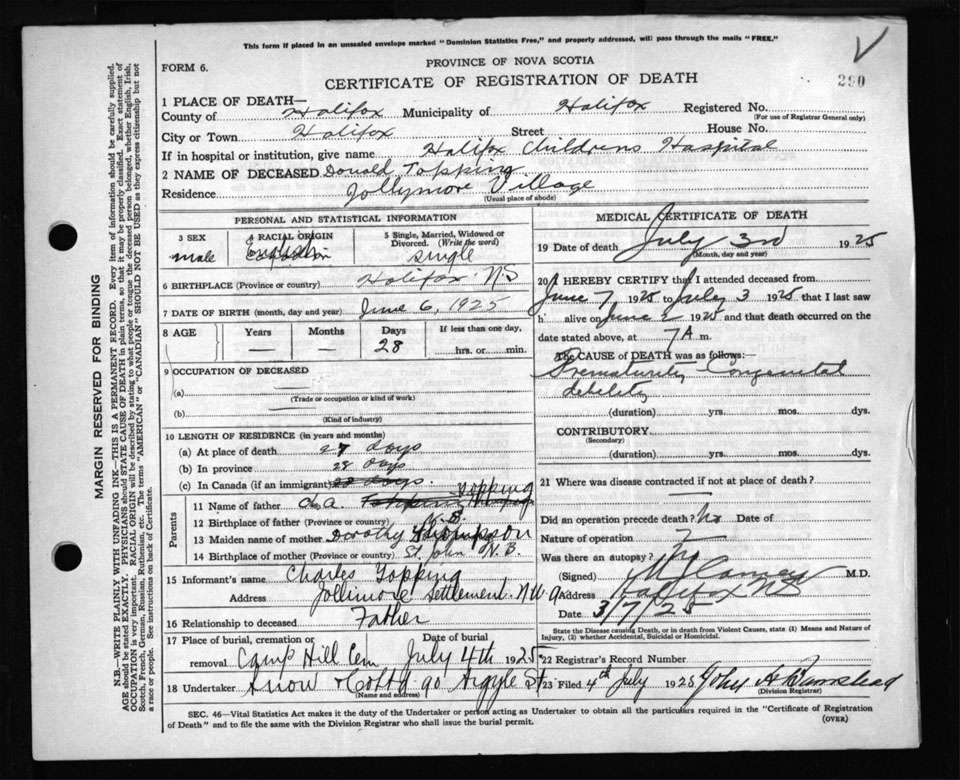 This form if placed in an unsealed envelope marked "Dominion Statistics Free," and properly addressed, will pass through the mails "FREE."
FORM 6.
PROVINCE OF NOVA SCOTIA
CERTIFICATE OF REGISTRATION OF DEATH
290
1 PLACE OF DEATH—
County of Halifax Municipality of Halifax Registered No.
(For use of Registrar General only)
City or Town Halifax Street House No.
If in hospital or institution, give name Halifax Childrens Hospital
2 NAME OF DECEASED Donald Topping
Residence Jollymore Village
(Usual place of abode)
PERSONAL AND STATISTICAL INFORMATION
3 SEX 4 RACIAL ORIGIN 5 Single, Married, Widowed or Divorced. (Write the word)
male single
6 BIRTHPLACE (Province or country) Halifax NS
7 DATE OF BIRTH (month, day and year) June 6, 1925
8 AGE Years Months Days If less than one day,
— — 28 hrs. or min.
9 OCCUPATION OF DECEASED
(a)
(Trade or occupation or kind of work)
(b)
(Kind of industry)
10 LENGTH OF RESIDENCE (in years and months)
(a) At place of death 27 days
(b) In province 28 days
(c) In Canada (if an immigrant) 28 days.
Parents
11 Name of father Topping
12 Birthplace of father (Province or country) N.B.
13 Maiden name of mother Dorothy Thompson
14 Birthplace of mother (Province or country) St. John N.B.
15 Informant's name Charles Topping
Address Jollimore Settlement. N W A
16 Relationship to deceased Father
17 Place of burial, cremation or removal Camp Hill Cem Date of burial July 4th 1925
18 Undertaker Snow & Co Ltd 90 Argyle St.
(Name and address)
MEDICAL CERTIFICATE OF DEATH
19 Date of death July 3rd 1925
(Month, day and year)
20 I HEREBY CERTIFY that I attended deceased from
June 7 1925 to July 3 1925 that I last saw
h alive on June 2 1925 and that death occurred on the
date stated above, at 7 A m.
The CAUSE OF DEATH was as follows:—
Prematurity Congenital
debility
(duration) yrs. mos. dys.
CONTRIBUTORY
(Secondary)
(duration) yrs. mos. dys.
21 Where was disease contracted if not at place of death?
Did an operation precede death? No Date of
Nature of operation
Was there an autopsy? No
(Signed) M.D.
Address Halifax NS
Date 3/7/25
State the Disease causing Death, or in death from Violent Causes, state (1) Means and Nature of
Injury, (2) whether Accidental, Suicidal or Homicidal.
22 Registrar's Record Number
23 Filed 4th July 1925 John A
(Division Registrar)
SEC. 46—Vital Statistics Act makes it the duty of the Undertaker or person acting as Undertaker to obtain all the particulars required in the "Certificate of Registration
of Death" and to file the same with the Division Registrar who shall issue the burial permit.
(OVER)
MARGIN RESERVED FOR BINDING
N.B.—WRITE PLAINLY WITH UNFADING INK—THIS IS A PERMANENT RECORD. Every item of information should be carefully supplied.
AGE should be stated EXACTLY. PHYSICIANS should STATE CAUSE OF DEATH in plain terms, so that it may be properly classified. Exact statement of
OCCUPATION is very important. RACIAL ORIGIN will be described by stating to what people or tongue the deceased person belonged, whether English, Irish,
Scotch, French, German, Russian, Ruthenian, etc. The terms "AMERICAN" or "CANADIAN" SHOULD NOT BE USED as they express citizenship but not
a race or people. See instructions on back of Certificate.